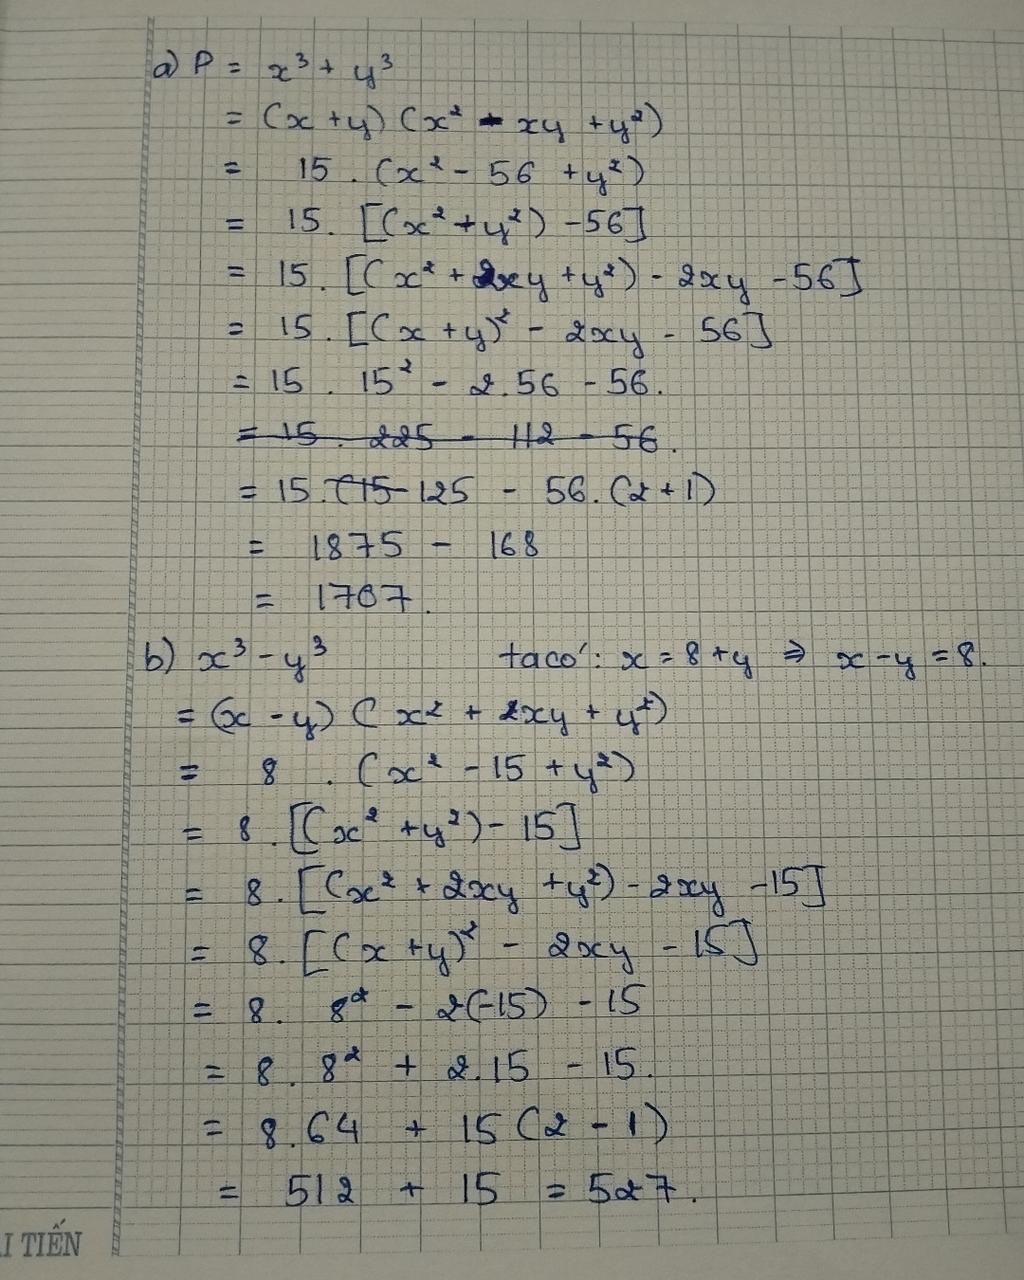 a) P = x³ + y³
= (x + y) (x² - xy + y²)
= 15 . (x² - 56 + y²)
= 15. [(x² + y²) - 56]
= 15. [(x² + 2xy + y²) - 2xy - 56]
= 15. [(x + y)² - 2xy - 56]
= 15 . 15² - 2.56 - 56.
= 15 . 225 - 112 - 56.
= 15. (15 - 125 - 56. (2 + 1)
= 1875 - 168
= 1707.
b) x³ - y³ ta có: x = 8 + y ⇒ x - y = 8.
= (x - y) ( x² + 2xy + y²)
= 8 . (x² - 15 + y²)
= 8 . [(x² + y²) - 15]
= 8. [(x² + 2xy + y²) - 2xy - 15]
= 8. [(x + y)² - 2xy - 15]
= 8. 8² - 2(-15) - 15
= 8. 8² + 2.15 - 15.
= 8.64 + 15 (2 - 1)
= 512 + 15 = 527.
I TIẾN